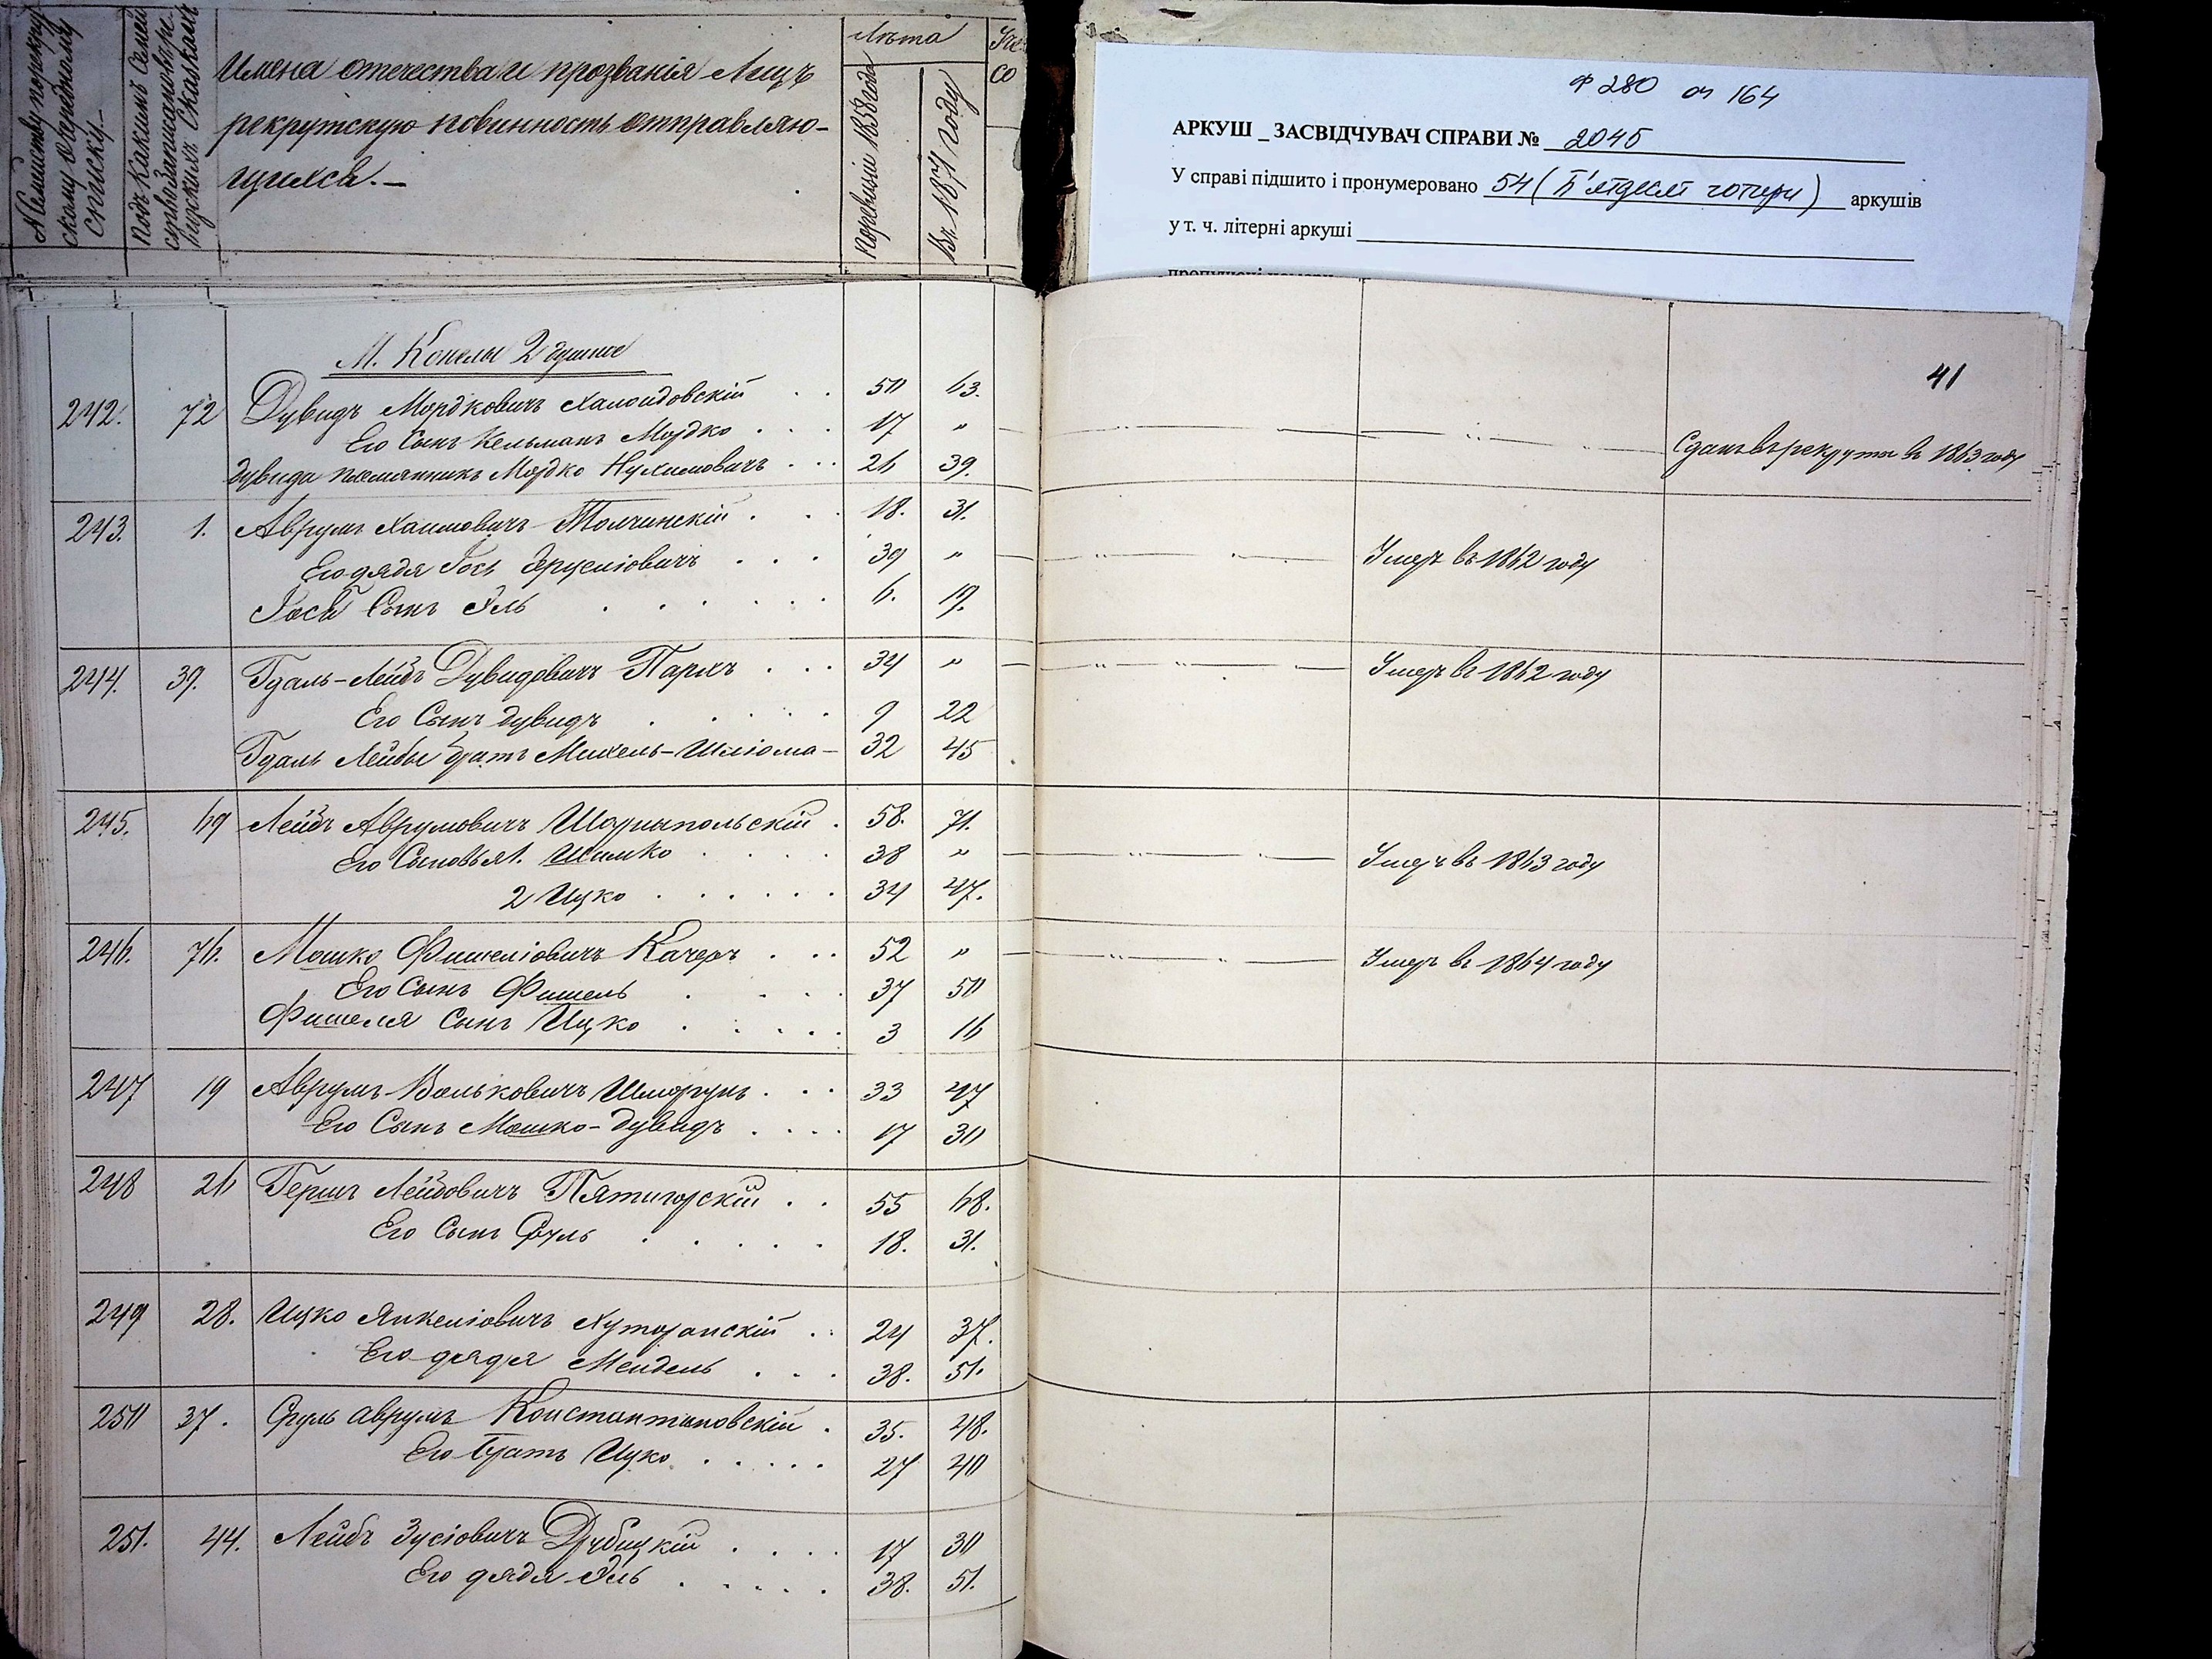 № семейству по рекрут
скому очередному
списку.—
Подъ какимъ семей
ствомъ написаны въ ре
визскихъ сказкахъ
Имена отечества и прозванія Лицъ
рекрутскую повинность отправляю-
щихся.—
Лѣта
По ревизіи 1858 года
Въ 1871 году
со
ф 280 оп 164
АРКУШ _ ЗАСВІДЧУВАЧ СПРАВИ № 2045
У справі підшито і пронумеровано 54 (П'ятдесят чотири) аркушів
у т. ч. літерні аркуші
пропущені номери
41
М. Конелы 2 душные
242. 72 Дувидъ Мордковичъ Халоидовскій . . 50 63.
Его Сынъ Кельманъ Мордко . . . 17 " Сданъ въ рекруты въ 1863 году
Дувида племянникъ Мордко Нухимовичъ . . . 26 39.
243. 1. Аврумъ Хаимовичъ Толчинскій . . . 18. 31.
Его дядя Іось Сруліовичъ . . . 39 " Умеръ въ 1862 году
Іося Сынъ Эль . . . . . . 6. 19.
244. 39. Гдаль-Лейбъ Дувидовичъ Пархъ . . . 34 " Умеръ въ 1862 году
Его Сынъ Дувидъ . . . . . 9 22
Гдаль Лейбы братъ Михель-Шліома — 32 45
245. 69 Лейбъ Аврумовичъ Шарыпольскій . 58. 71.
Его Сыновья 1. Шимко . . . . 38 " Умеръ въ 1863 году
2 Ицко . . . . . . 34 47.
246. 76. Мошко Фишеліовичъ Качеръ . . . 52 " Умеръ въ 1864 году
Его Сынъ Фишель . . . . 37 50
Фишеля Сынъ Ицко . . . . . 3 16
247 19 Аврумъ Вольковичъ Шморгунъ . . . 33 47
Его Сынъ Мошко-Дувидъ . . . . 17 30
248 26 Гершъ Лейбовичъ Пятигорскій . . 55 68.
Его Сынъ Сруль . . . . . 18. 31.
249 28. Ицко Янкеліовичъ Хуторанскій . . 24 37.
Его дядя Мендель . . . 38. 51.
250 37. Сруль Аврумъ Константиновскій . 35. 48.
Его братъ Ицко . . . . . 27 40
251. 44. Лейбъ Зусіовичъ Дубицкій . . . . 17 30
Его дядя Эль . . . . . 38. 51.